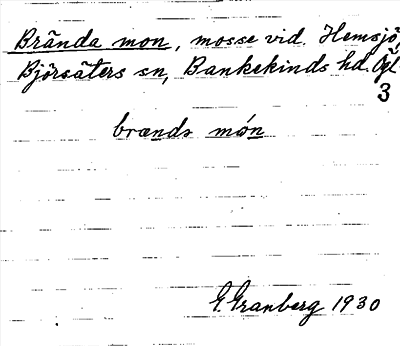 Brända mon, mosse vid. Hemsjö,
Björsäters sn, Bankekinds hd. Ögl
3
brænds món
G. Granberg 1930